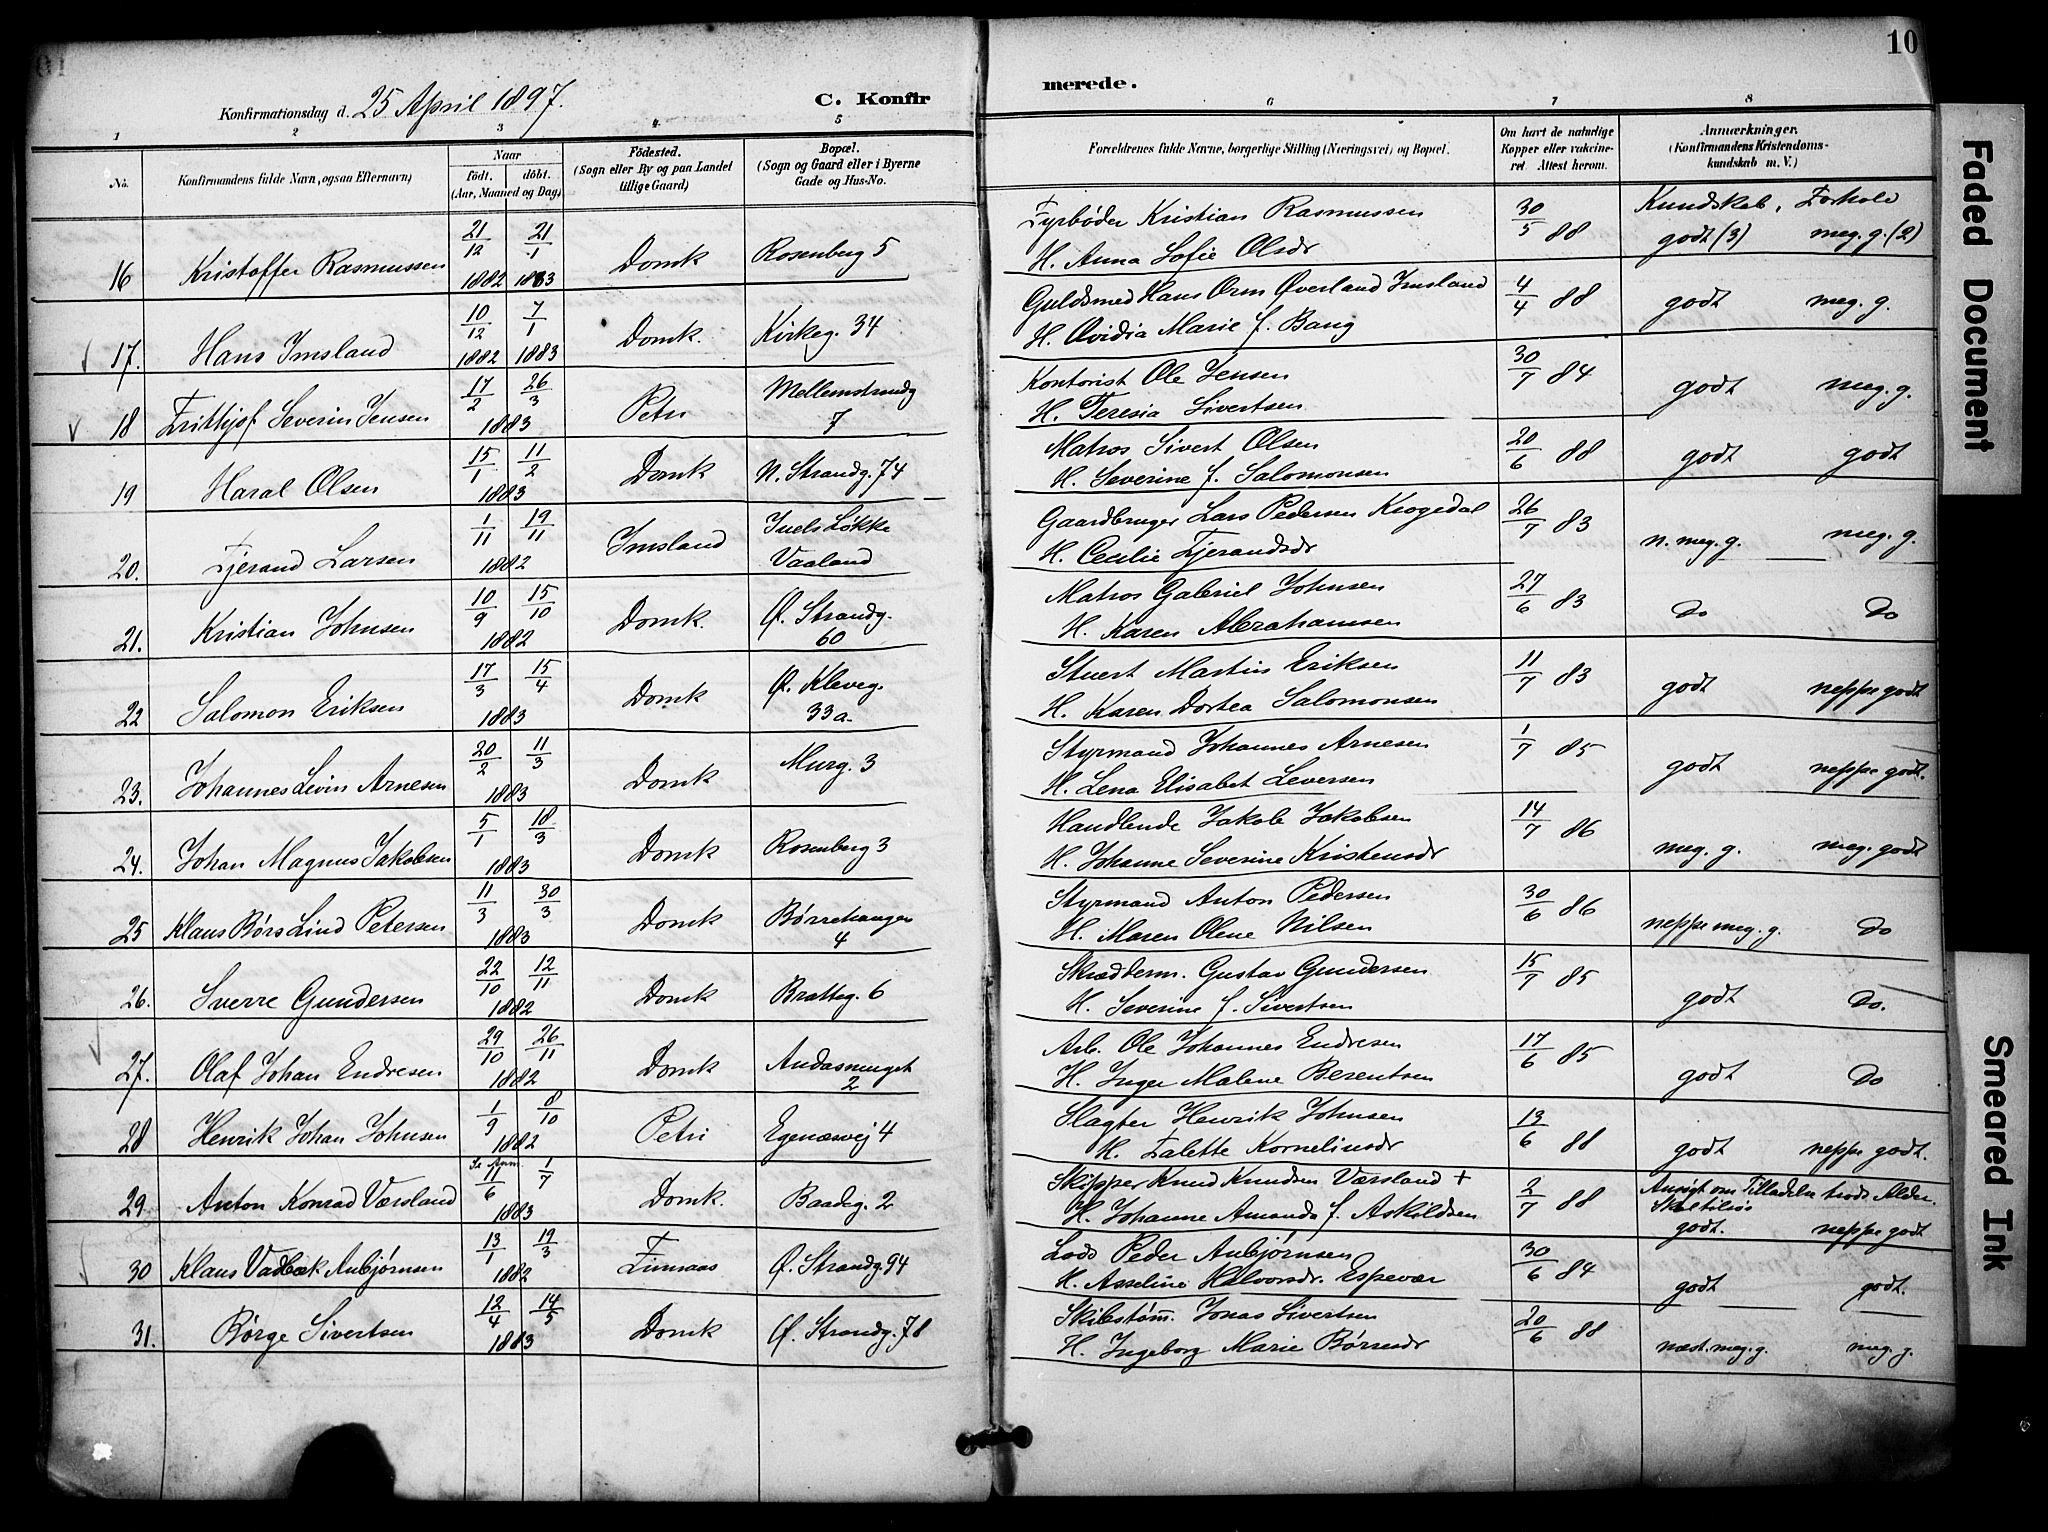 10
Konfirmationsdag d. 25 April 1897.
C. Konfir
merede.
1 2 3 4 5 6 7 8
No.
Konfirmandens fulde Navn, ogsaa Efternavn)
Naar
Födt. döbt.
(Aar, Maaned og Dag)
Födested.
(Sogn eller By og paa Landet
tillige Gaard)
Bopæl.
(Sogn og Gaard eller i Byerne
Gade og Hus-No.
Forældrenes fulde Navne, borgerlige Stilling (Næringsvei) og Bopæl.
Om havt de naturlige
Kopper eller vakcine-
ret Attest herom.
Anmærkninger.
(Konfirmandens Kristendoms-
kundskab m. V.)
Kundskab, Forhold
16 Kristoffer Rasmussen 21/12 1882 21/1 1883 Domk Rosenberg 5 Fyrbøder Kristian Rasmussen 30/5 88 godt (3) meg. g. (2)
H. Anna Sofie Olsdr
17. Hans Imsland 10/12 1882 7/1 1883 Domk. Kirkeg. 34 Guldsmed Hans Orm Øverland Imsland 4/4 88 godt meg. g.
H. Ovidia Marie f. Bang
18 Frithjof Severin Jensen 17/2 26/3 1883 Petri Mellemstrandg 7 Kontorist Ole Jensen 30/7 84 godt meg. g.
H. Teresia Sivertsen
19 Haral Olsen 15/1 11/2 1883 Domk N. Strandg. 74 Matros Sivert Olsen 20/6 88 godt godt
H. Severine f. Salomonsen
20. Tjerand Larsen 1/11 19/11 1882 Imsland Juels Løkke Vaaland Gaardbruger Lars Pedersen Krogedal 26/7 83 n. meg. g. meg. g.
H. Cecilie Tjerandsdr
21. Kristian Johnsen 10/9 15/10 1882 Domk. Ø. Strandg. 60 Matros Gabriel Johnsen 27/6 83 Do Do
H. Karen Abrahamsen
22 Salomon Eriksen 17/3 15/4 1883 Domk Ø. Kleveg. 33a. Stuert Martin Eriksen 11/7 83 godt neppe godt
H. Karen Dortea Salomonsen
23. Johannes Levin Arnesen 20/2 11/3 1883 Domk Murg. 3 Styrmand Johannes Arnesen 1/7 85 godt neppe godt.
H. Lena Elisabet Leversen
24. Johan Magnus Jakobsen 5/1 18/3 1883 Domk Rosenberg 3 Handlende Jakob Jakobsen 14/7 86 meg. g. meg. godt
H. Johanne Severine Kristensdr
25 Klaus Børs Lind Petersen 11/3 30/3 1883 Domk Børrehaugen 4 Styrmand Anton Pedersen 30/6 86 neppe meg. g. Do
H. Maren Olene Nilsen
26. Sverre Gundersen 22/10 12/11 1882 Domk Bratteg. 6 Skrædderm. Gustav Gundersen 15/7 85 godt Do.
H. Severine f. Sivertsen
27. Olaf Johan Endresen 29/10 26/11 1882 Domk Andasmuget 2 Arb. Ole Johannes Endresen 17/6 85 godt Do
H. Inger Malene Berentsen
28 Henrik Johan Johnsen 1/9 8/10 1882 Petri Egenæsvej 4 Slagter Henrik Johnsen 13/6 88 godt neppe godt.
H. Talette Kornelinsdr
29. Anton Konrad Værsland Se Anm 11/6 1/7 1883 Domk. Baadeg. 2 Skipper Knud Knudsen Værsland + 2/7 88 om Tilladelse trods Alder.
H. Johanne Amanda f. Askildsen godt. neppe godt
30 Klaus Vadbæk Anbjørnsen 13/1 19/3 1882 Finnaas Ø. Strandg 94 Lods Peder Anbjørnsen 30/6 84 godt godt.
H. Asseline Halvorsdr. Espevær
31. Børge Sivertsen 12/4 14/5 1883 Domk Ø. Strandg. 78 Skibstøm̅. Jonas Sivertsen 20/6 88 næst. meg. g. meg. g.
H. Ingeborg Marie Børresdr
Faded Document
Smeared Ink